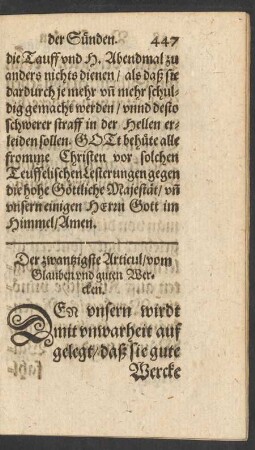 der Sünden. 447
die Tauff vnd H. Abendmal zu
anders nichts dienen / als daß sie
dardurch je mehr vñ mehr schul-
dig gemacht werden / vnnd desto
schwerer straff in der Hellen er-
leiden sollen. GOtt behüte alle
fromme Christen vor solchen
Teuffelischen Lesterungen gegen
die hohe Göttliche Majestät / vñ
vnsern einigen HErrn Gott im
Himmel / Amen.
Der zwantzigste Articul / vom
Glauben vnd guten Wer-
cken.
DEn vnsern wirdt
mit vnwarheit auf
gelegt / daß sie gute
Wercke